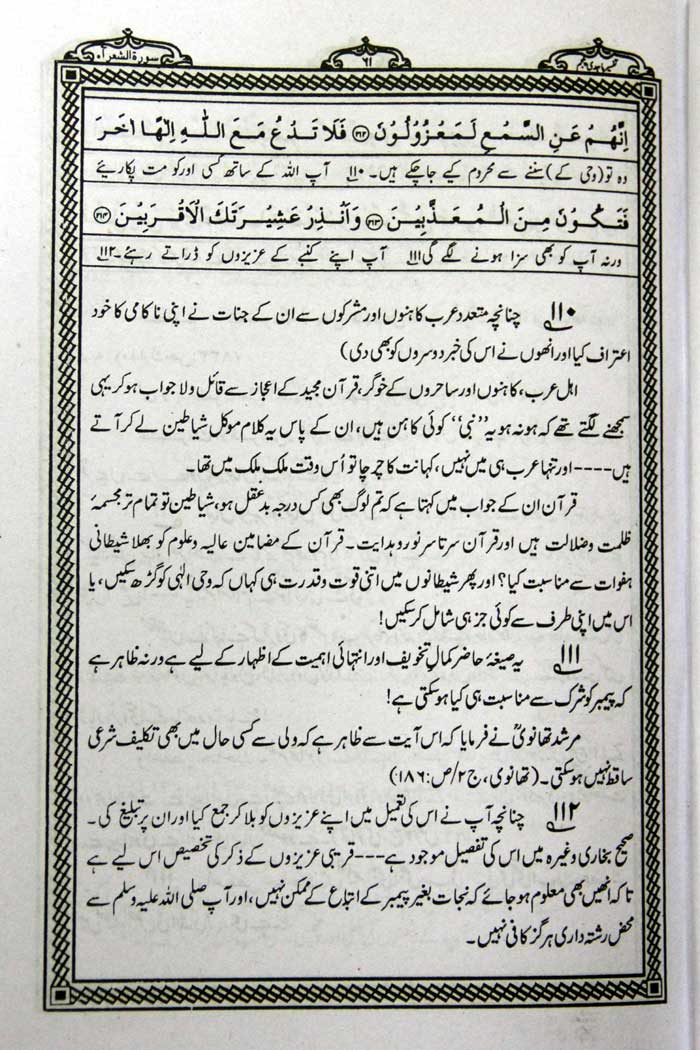 سورة الشعرآء
۶۱
تفسیر ماجدی پنجم
اِنَّهُمْ عَنِ السَّمْعِ لَمَعْزُوْلُوْنَ ﴿۲۱۲﴾ فَلَا تَدْعُ مَعَ اللّٰهِ اِلٰهًا اٰخَرَ
وہ تو (وحی کے) سننے سے محروم کیے جاچکے ہیں۔ ۱۱۰ آپ اللہ کے ساتھ کسی اور کو مت پکاریئے
فَتَكُوْنَ مِنَ الْمُعَذَّبِيْنَ ﴿۲۱۳﴾ وَاَنْذِرْ عَشِيْرَتَكَ الْاَقْرَبِيْنَ ﴿۲۱۴﴾
ورنہ آپ کو بھی سزا ہونے لگے گی ۱۱۱ آپ اپنے کنبے کے عزیزوں کو ڈراتے رہئے۔ ۱۱۲
۱۱۰ چنانچہ متعدد عرب کاہنوں اور مشرکوں سے ان کے جنات نے اپنی ناکامی کا خود
اعتراف کیا اور انھوں نے اس کی خبر دوسروں کو بھی دی)
اہل عرب، کاہنوں اور ساحروں کے خوگر، قرآن مجید کے اعجاز سے قائل ولا جواب ہوکر یہی
سمجھنے لگتے تھے کہ ہو نہ ہو یہ ”نبی“ کوئی کاہن ہیں، ان کے پاس یہ کلام موکل شیاطین لے کر آتے
ہیں----اور تنہا عرب ہی میں نہیں، کہانت کا چرچا تو اُس وقت ملک ملک میں تھا۔
قرآن ان کے جواب میں کہتا ہے کہ تم لوگ بھی کس درجہ بدعقل ہو، شیاطین تو تمام تر مجسمۂ
ظلمت وضلالت ہیں اور قرآن سرتاسر نور وہدایت۔ قرآن کے مضامین عالیہ وعلوم کو بھلا شیطانی
ہفوات سے مناسبت کیا؟ اور پھر شیطانوں میں اتنی قوت وقدرت ہی کہاں کہ وحی الٰہی کو گڑھ سکیں، یا
اس میں اپنی طرف سے کوئی جز ہی شامل کرسکیں!
۱۱۱ یہ صیغۂ حاضر کمالِ تخویف اور انتہائی اہمیت کے اظہار کے لیے ہے ورنہ ظاہر ہے
کہ پیمبر کو شرک سے مناسبت ہی کیا ہوسکتی ہے!
مرشد تھانویؒ نے فرمایا کہ اس آیت سے ظاہر ہے کہ ولی سے کسی حال میں بھی تکلیف شرعی
ساقط نہیں ہوسکتی۔ (تھانوی، ج۲/ص:۱۸۶)
۱۱۲ چنانچہ آپ نے اس کی تعمیل میں اپنے عزیزوں کو بلا کر جمع کیا اور ان پر تبلیغ کی۔
صحیح بخاری وغیرہ میں اس کی تفصیل موجود ہے---قریبی عزیزوں کے ذکر کی تخصیص اس لیے ہے
تاکہ انھیں بھی معلوم ہو جائے کہ نجات بغیر پیمبر کے اتباع کے ممکن نہیں، اور آپ صلی اللہ علیہ وسلم سے
محض رشتہ داری ہرگز کافی نہیں۔